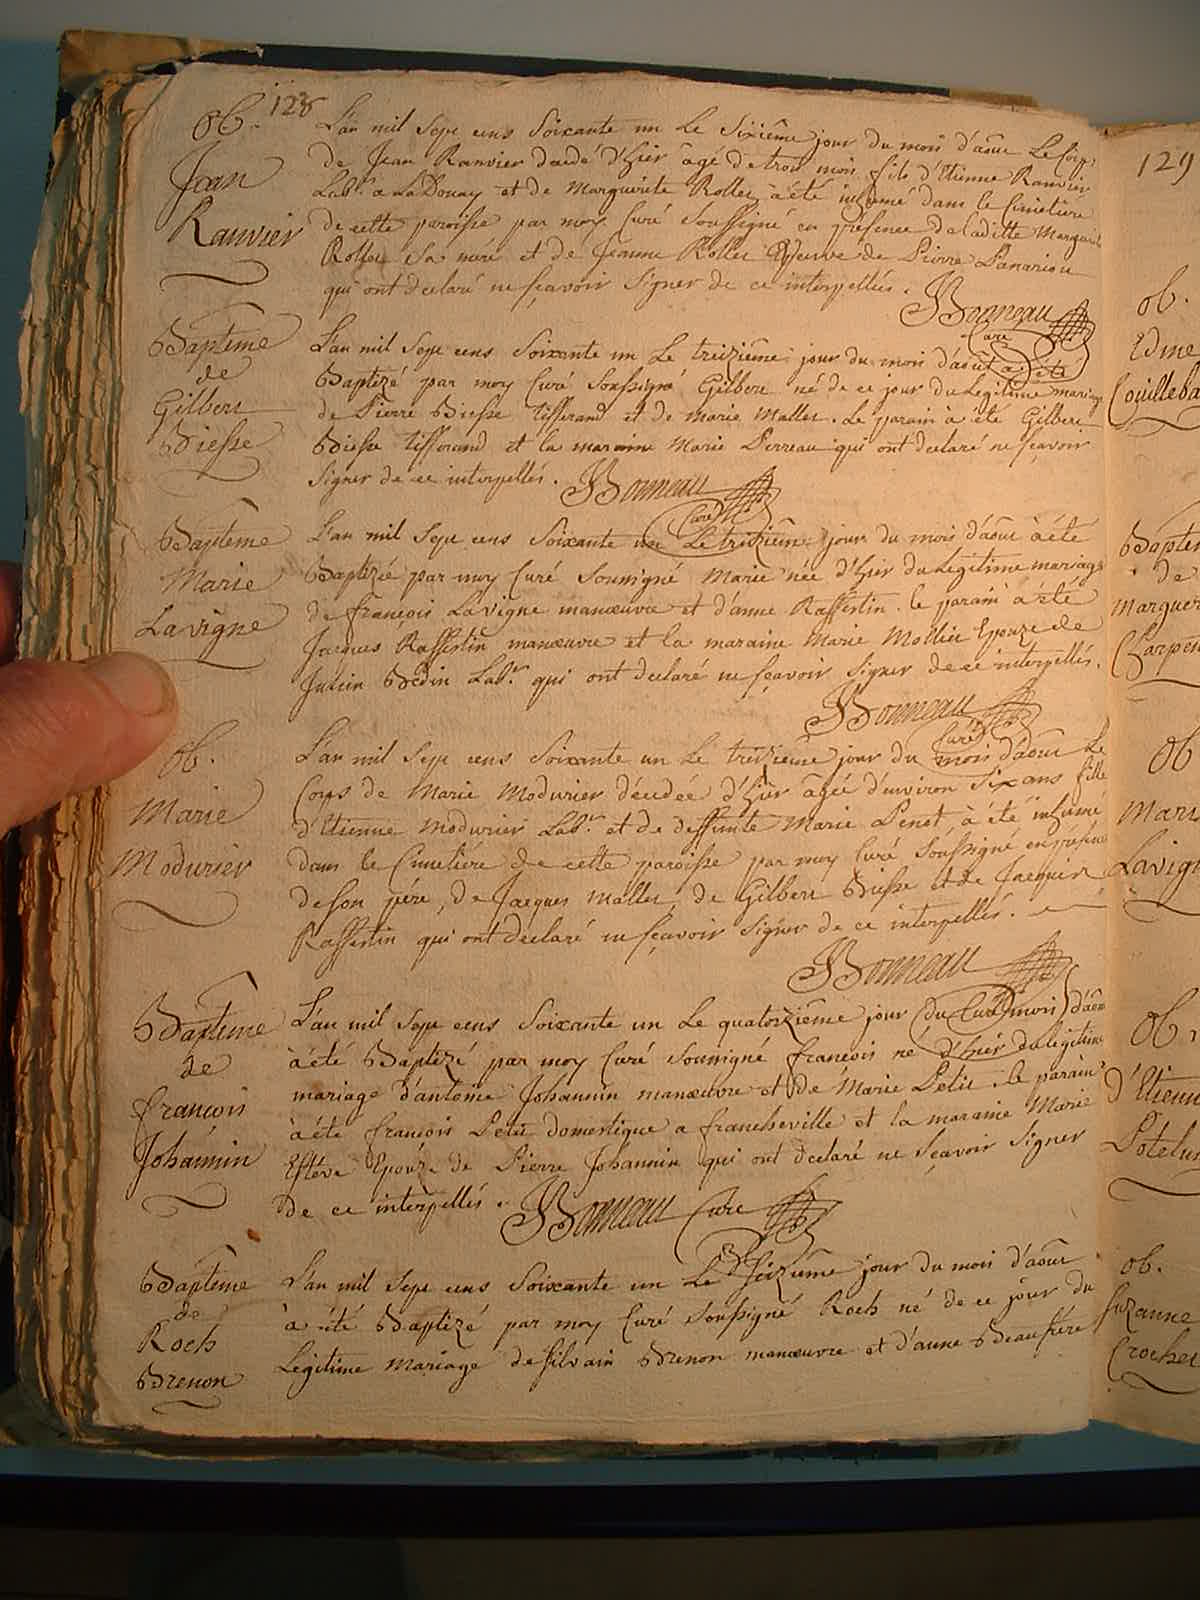 128
ob.
Jean
Ranvier
L'an mil Sept cens Soixante un Le Sixiême jour du mois d'aoust Le Corps
de Jean Ranvier décédé d'hier âgé de trois mois fils d'Etienne Ranvier
Labr. a La Douay et de Marguerite Rollet à été inhumé dans le Cimetiere
de cette paroisse par moy Curé Soussigné en présence de laditte Marguerite
Rollet Sa mére et de Jeanne Rollet veuve de Pierre Panariou
qui ont déclaré ne sçavoir Signer de ce interpellés.
JBonneau
Curé
Baptême
de
Gilbert
Biesse
L'an mil Sept cens Soixante un Le treiziême jour du mois d'aoust a été
Baptizé par moy Curé Soussigné Gilbert né de ce jour du Legitime mariage
de Pierre Biesse tisserand et de Marie Mallet. Le parain à été Gilbert
Biesse tisserand et la maraine Marie Perreau qui ont declaré ne sçavoir
Signer de ce interpellés. JBonneau
Curé
Baptême
Marie
Lavigne
L'an mil Sept cens Soixante un Le treiziême jour du mois d'aout à été
Baptizée par moy Curé Soussigné Marie née d'hier du Legitime mariage
de françois Lavigne manœuvre et d'anne Raffestin. le parain à été
Jacques Raffestin manœuvre et la maraine Marie Mollier Epouze de
Julien Bedin Labr. qui ont declaré ne sçavoir Signer de ce interpellés.
JBonneau
Curé
ob.
Marie
Modurier
L'an mil Sept cens Soixante un Le treizieme jour du mois d'aout Le
Corps de Marie Modurier décédée d'hier âgée d'environ Six ans fille
d'Etienne Modurier Labr. et de deffunte Marie Penet à été inhumé
dans le Cimetiére de cette paroisse par moy Curé Soussigné en présence
de Son pére, de Jacques Mallet, de Gilbert Biesse et de Jacques
Raffestin qui ont déclaré ne sçavoir Signer de ce interpellés.
JBonneau
Curé
Baptême
de
françois
Johannin
L'an mil Sept cens Soixante un Le quatorziême jour du mois d'aout
à été Baptizé par moy Curé Soussigné françois né d'hier du legitime
mariage d'antoine Johannin manœuvre et de Marie Petit. le parain
à été françois Petit domestique a francheville et la maraine Marie
Estève Epouze de Pierre Johannin qui ont declaré ne sçavoir Signer
de ce interpellés. JBonneau Curé
Baptême
de
Roch
Brenon
L'an mil Sept cens Soixante un Le Seiziême jour du mois d'aout
à été Baptizé par moy Curé Soussigné Roch né de ce jour du
Legitime mariage de silvain Brenon manœuvre et d'anne Beaufrére
129
ob.
Edme
Couilleba
Baptem
de
Marguer
Charpen
ob
Mari
Lavign
ob.
d'Etienn
Potelu
ob.
Suzanne
Crochet